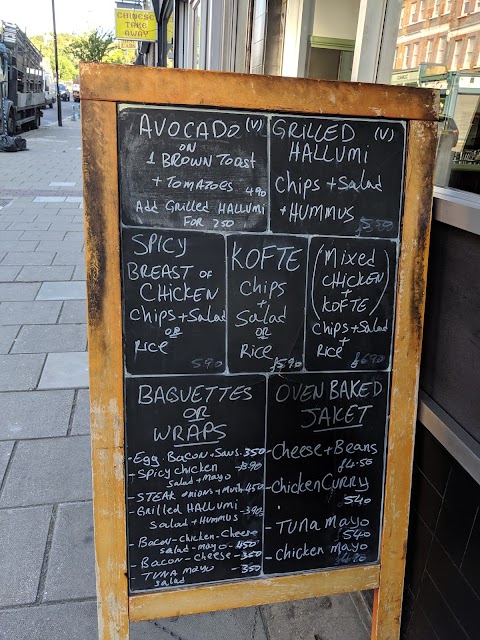 CHINESE
TAKE
AWAY
AVOCADO (V)
ON
1 BROWN TOAST
+ TOMATOES 490
Add Grilled HALLUMI
FOR 250
GRILLED (V)
HALLUMI
Chips + Salad
+ HUMMUS
£550
SPICY
BREAST OF
CHICKEN
Chips + Salad
OR
Rice
590
KOFTE
Chips
+
Salad
OR
Rice £590
(Mixed
CHICKEN
+
KOFTE)
Chips + Salad
+
Rice £690
BAGUETTES
OR
WRAPS
- Egg. Bacon + Saus. 350
- Spicy Chicken - 390
Salad + Mayo
- STEAK onions + Mush 450
- Grilled HALLUMI - 390
Salad + Hummus
- Bacon - Chicken - Cheese
salad - mayo - 450
- Bacon - Cheese - 350
- TUNA mayo - 350
salad
OVEN BAKED
JAKET
- Cheese + Beans
£4.50
- Chicken Curry
540
- Tuna Mayo
540
- Chicken mayo